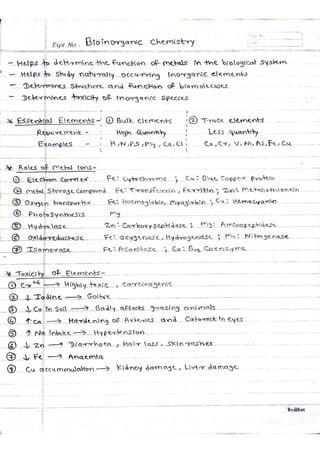 Expt. No.
Bioinorganic Chemistry
- Helps to determine the function of metals in the biological system
- Helps to study naturally occurring inorganic elements
- Determines structure and function of biomolecules
- Determines toxicity of inorganic species
* Essential Elements - ① Bulk elements ② Trace elements
Requirement - High Quantity Less quantity
Examples - H, N, P, S, Mg, Ca, Cl Co, Cr, V, Ni, As, Fe, Cu
* Roles of Metal Ions-
① Electron Carrier Fe: Cytochrome ; Cu: Blue Copper Protein
② Metal Storage Compound Fe: Transferrin, Ferritin; Zn: Metallothionein
③ Oxygen transporter Fe: Haemoglobin, Myoglobin ; Cu: Hemocyanin
④ Photosynthesis Mg
⑤ Hydrolase Zn: Carboxypeptidase ; Mg: Aminopeptidase
⑥ Oxidoreductase Fe: Oxygenase, Hydrogenase ; Mo: Nitrogenase
⑦ Isomerase Fe: Aconitase ; Co: B12 Coenzyme
* Toxicity of Elements-
① Cr+6 → Highly toxic, carcinogenic
② ↓ Iodine → Goitre
③ ↓ Co in Soil → Badly affects grazing animals
④ ↑ Ca → Hardening of Arteries and Cataract in eyes
⑤ ↑ Na intake → Hypertension
⑥ ↓ Zn → Diarrhoea, Hair loss, Skin rashes
⑦ ↓ Fe → Anaemia
⑧ Cu accumulation → Kidney damage, Liver damage